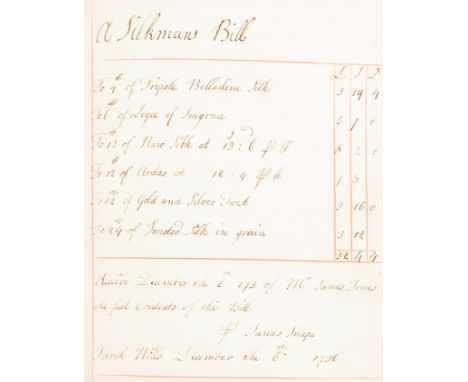 A Silkmans Bill
L S D
To 4 lb of Tripole Belladine Silk 3 19 4
To 6 lb of Legee of Smyrna 3 0
To 12 lb of Raw Silk at 13 : 6 ⅌ lb 8 2 0
To 12 lb of Ardas at 12 : 4 ⅌ lb 7 8
To 12 of Gold and Silver Twist 3 16 0
To 24 of Twisted Silk in grain 3 12
32 4 4
December the 6th of Mr James Jones
the full Contents of this Bill
⅌ James Snape
Sarah Wills December the 6th 1736